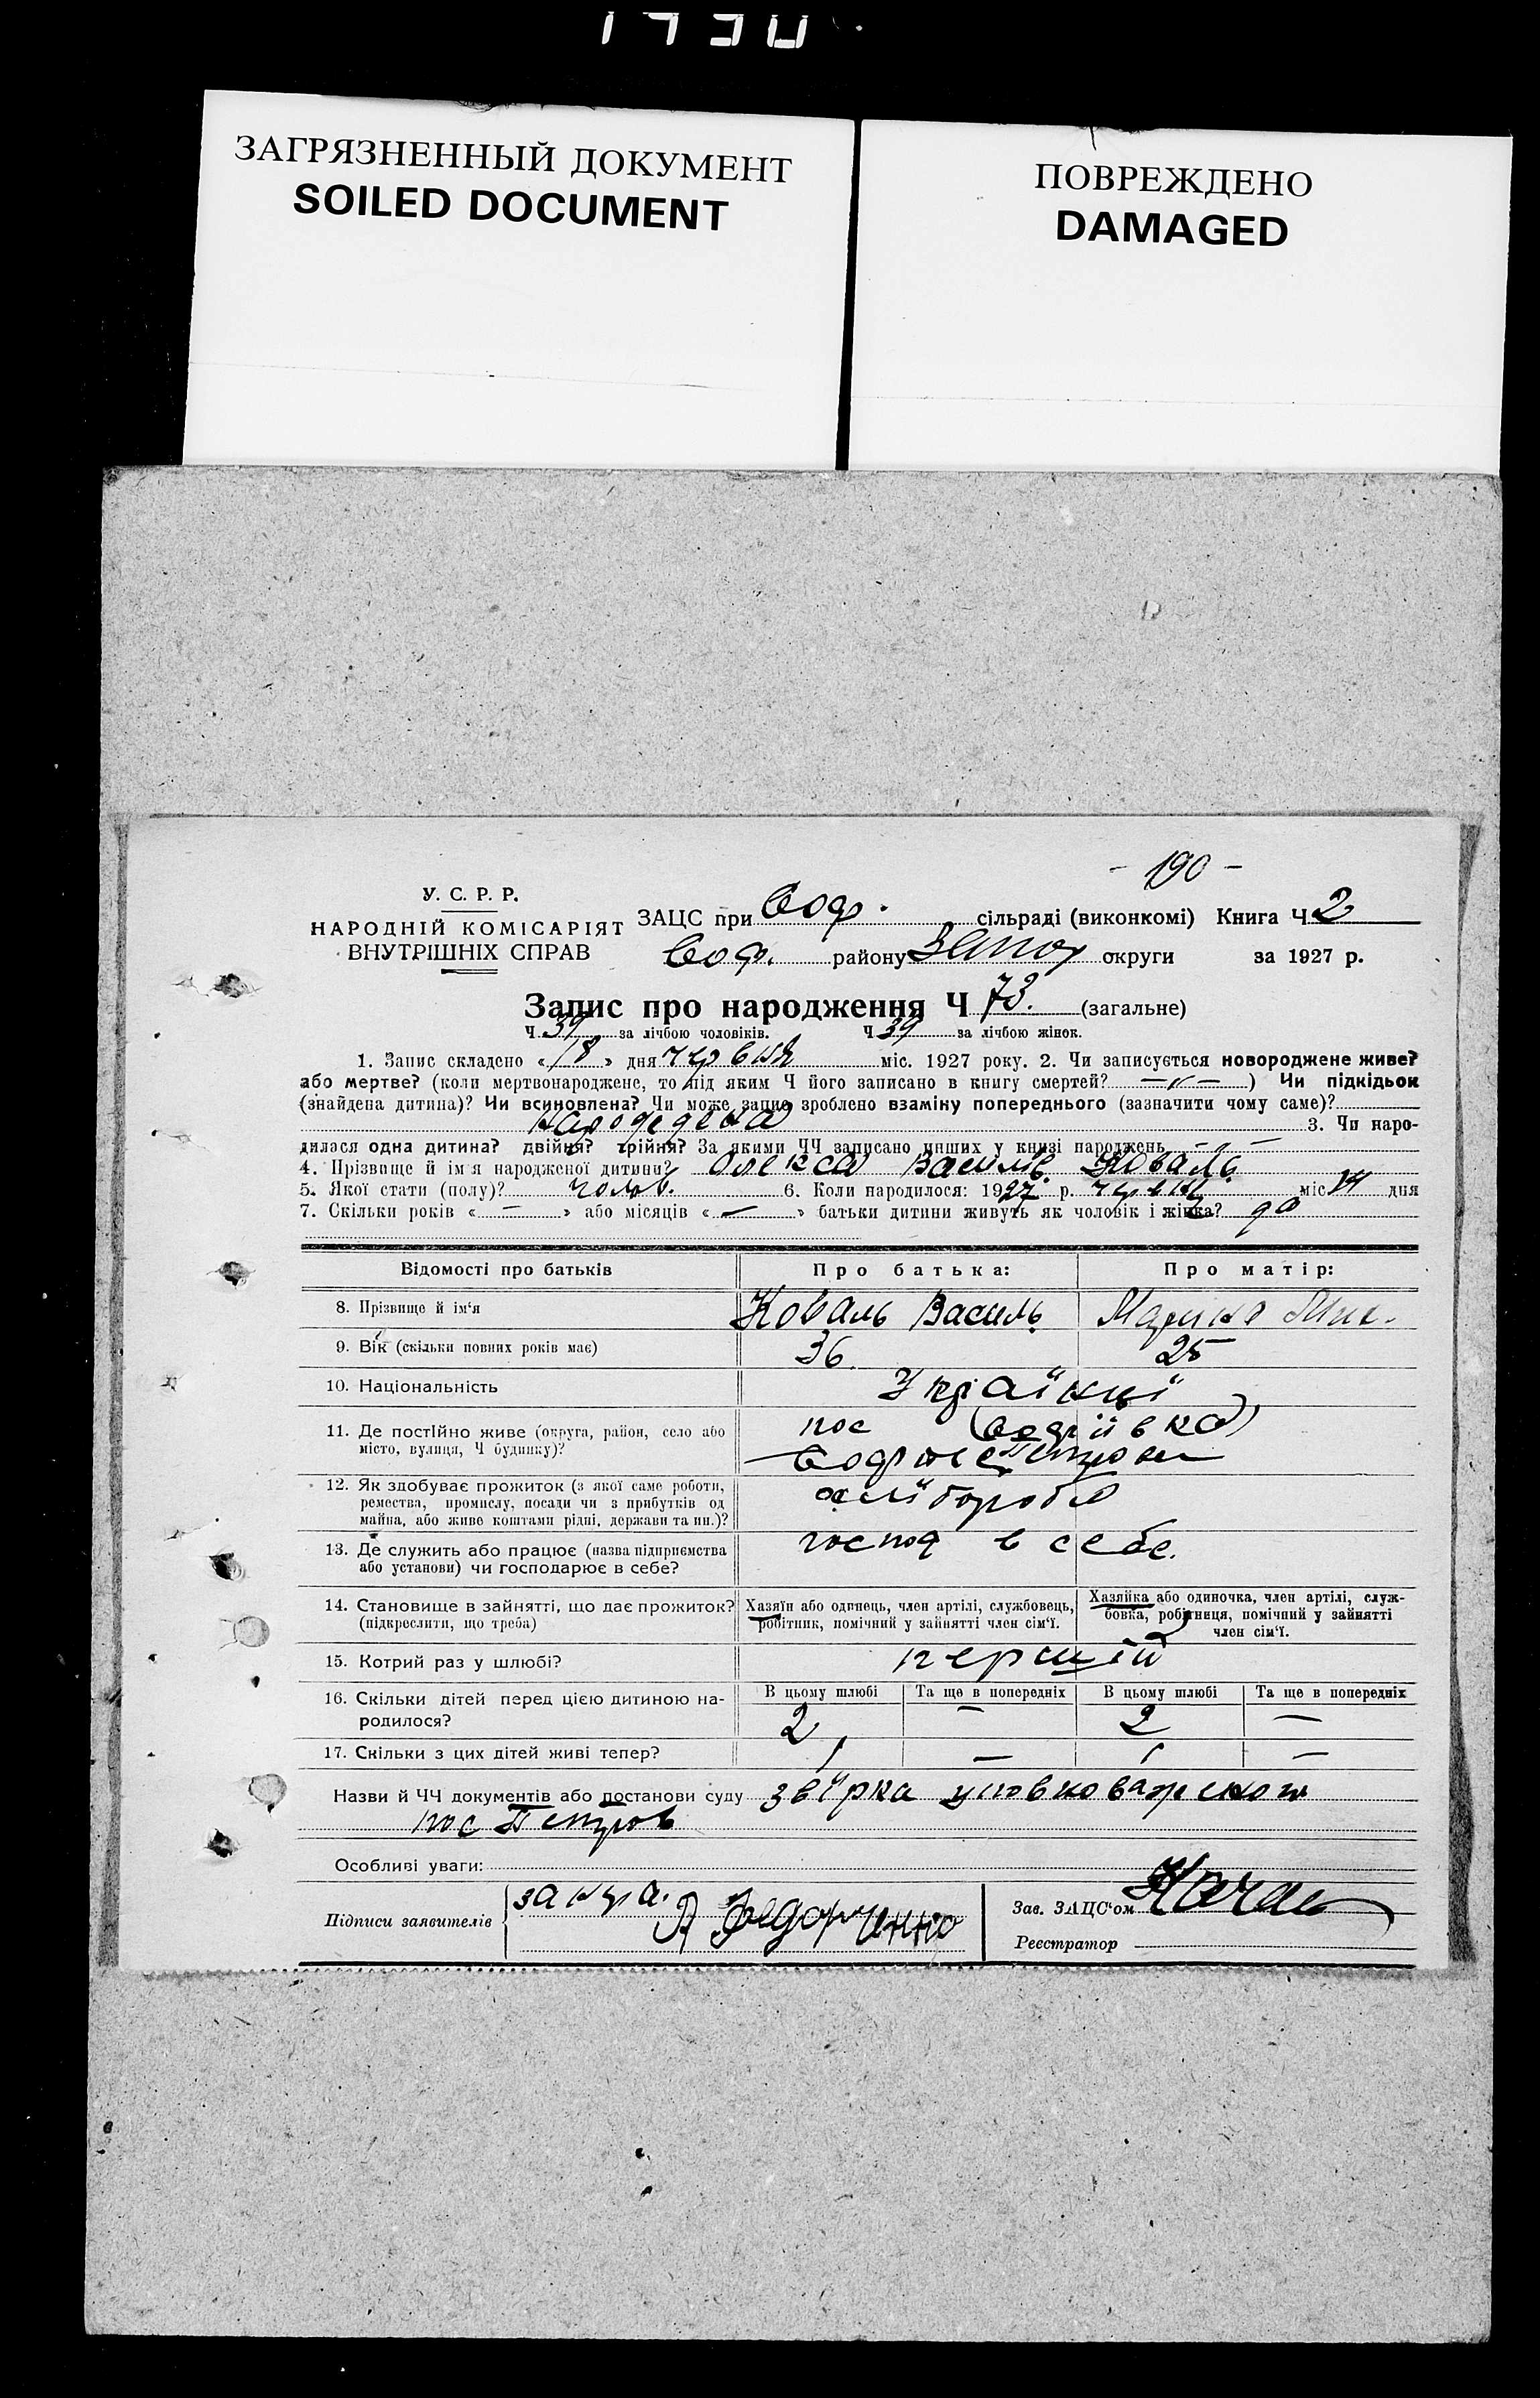 ЗАГРЯЗНЕННЫЙ ДОКУМЕНТ
SOILED DOCUMENT
ПОВРЕЖДЕНО
DAMAGED
- 190 -
У. С. Р. Р.
НАРОДНІЙ КОМІСАРІЯТ
ВНУТРІШНІХ СПРАВ
ЗАЦС при Соф. сільраді (виконкомі) Книга Ч 2
Соф. району Запор округи за 1927 р.
Запис про народження Ч 73. (загальне)
Ч 39 за лічбою чоловіків. Ч 39 за лічбою жінок.
1. Запис складено « 18 » дня червня міс. 1927 року. 2. Чи записується новороджене живе?
або мертве? (коли мертвонароджене, то під яким Ч його записано в книгу смертей? —„—) Чи підкідьок
(знайдена дитина)? Чи всиновлена? Чи може запис зроблено взаміну попереднього (зазначити чому саме)?
3. Чи наро-
дилася одна дитина? двійня? трійня? За якими ЧЧ записано инших у книзі народжень — — —
4. Прізвище й ім'я народженої дитини? Олекса Василів Коваль
5. Якої стати (полу)? чолов. 6. Коли народилося: 1927 р. червня міс 14 дня
7. Скільки років « — » або місяців « — » батьки дитини живуть як чоловік і жінка?
Відомості про батьків
Про батька:
Про матір:
8. Прізвище й ім'я Коваль Василь Марина
9. Вік (скільки повних років має) 36 25
10. Національність Українці
11. Де постійно живе (округа, район, село або
місто, вулиця, Ч будинку)?
пос (Софіївка)
12. Як здобуває прожиток (з якої саме роботи,
ремества, промислу, посади чи з прибутків од
майна, або живе коштами рідні, держави та ин.)?
хліборобів
13. Де служить або працює (назва підприємства
або установи) чи господарює в себе?
господ в себе.
14. Становище в зайнятті, що дає прожиток?
(підкреслити, що треба)
Хазяїн або одинець, член артілі, службовець,
робітник, помічний у зайнятті член сім'ї.
Хазяйка або одиночка, член артілі, служ-
бовка, робітниця, помічний у зайнятті
член сім'ї.
15. Котрий раз у шлюбі? перший
16. Скільки дітей перед цією дитиною на-
родилося?
В цьому шлюбі Та ще в попередніх В цьому шлюбі Та ще в попередніх
2 — 2 —
17. Скільки з цих дітей живі тепер? 1 — 1 —
Назви й ЧЧ документів або постанови суду звірка уповноваженого
пос Петров
Особливі уваги:
Підписи заявителів
Федорченко
Зав. ЗАЦС'ом
Реєстратор